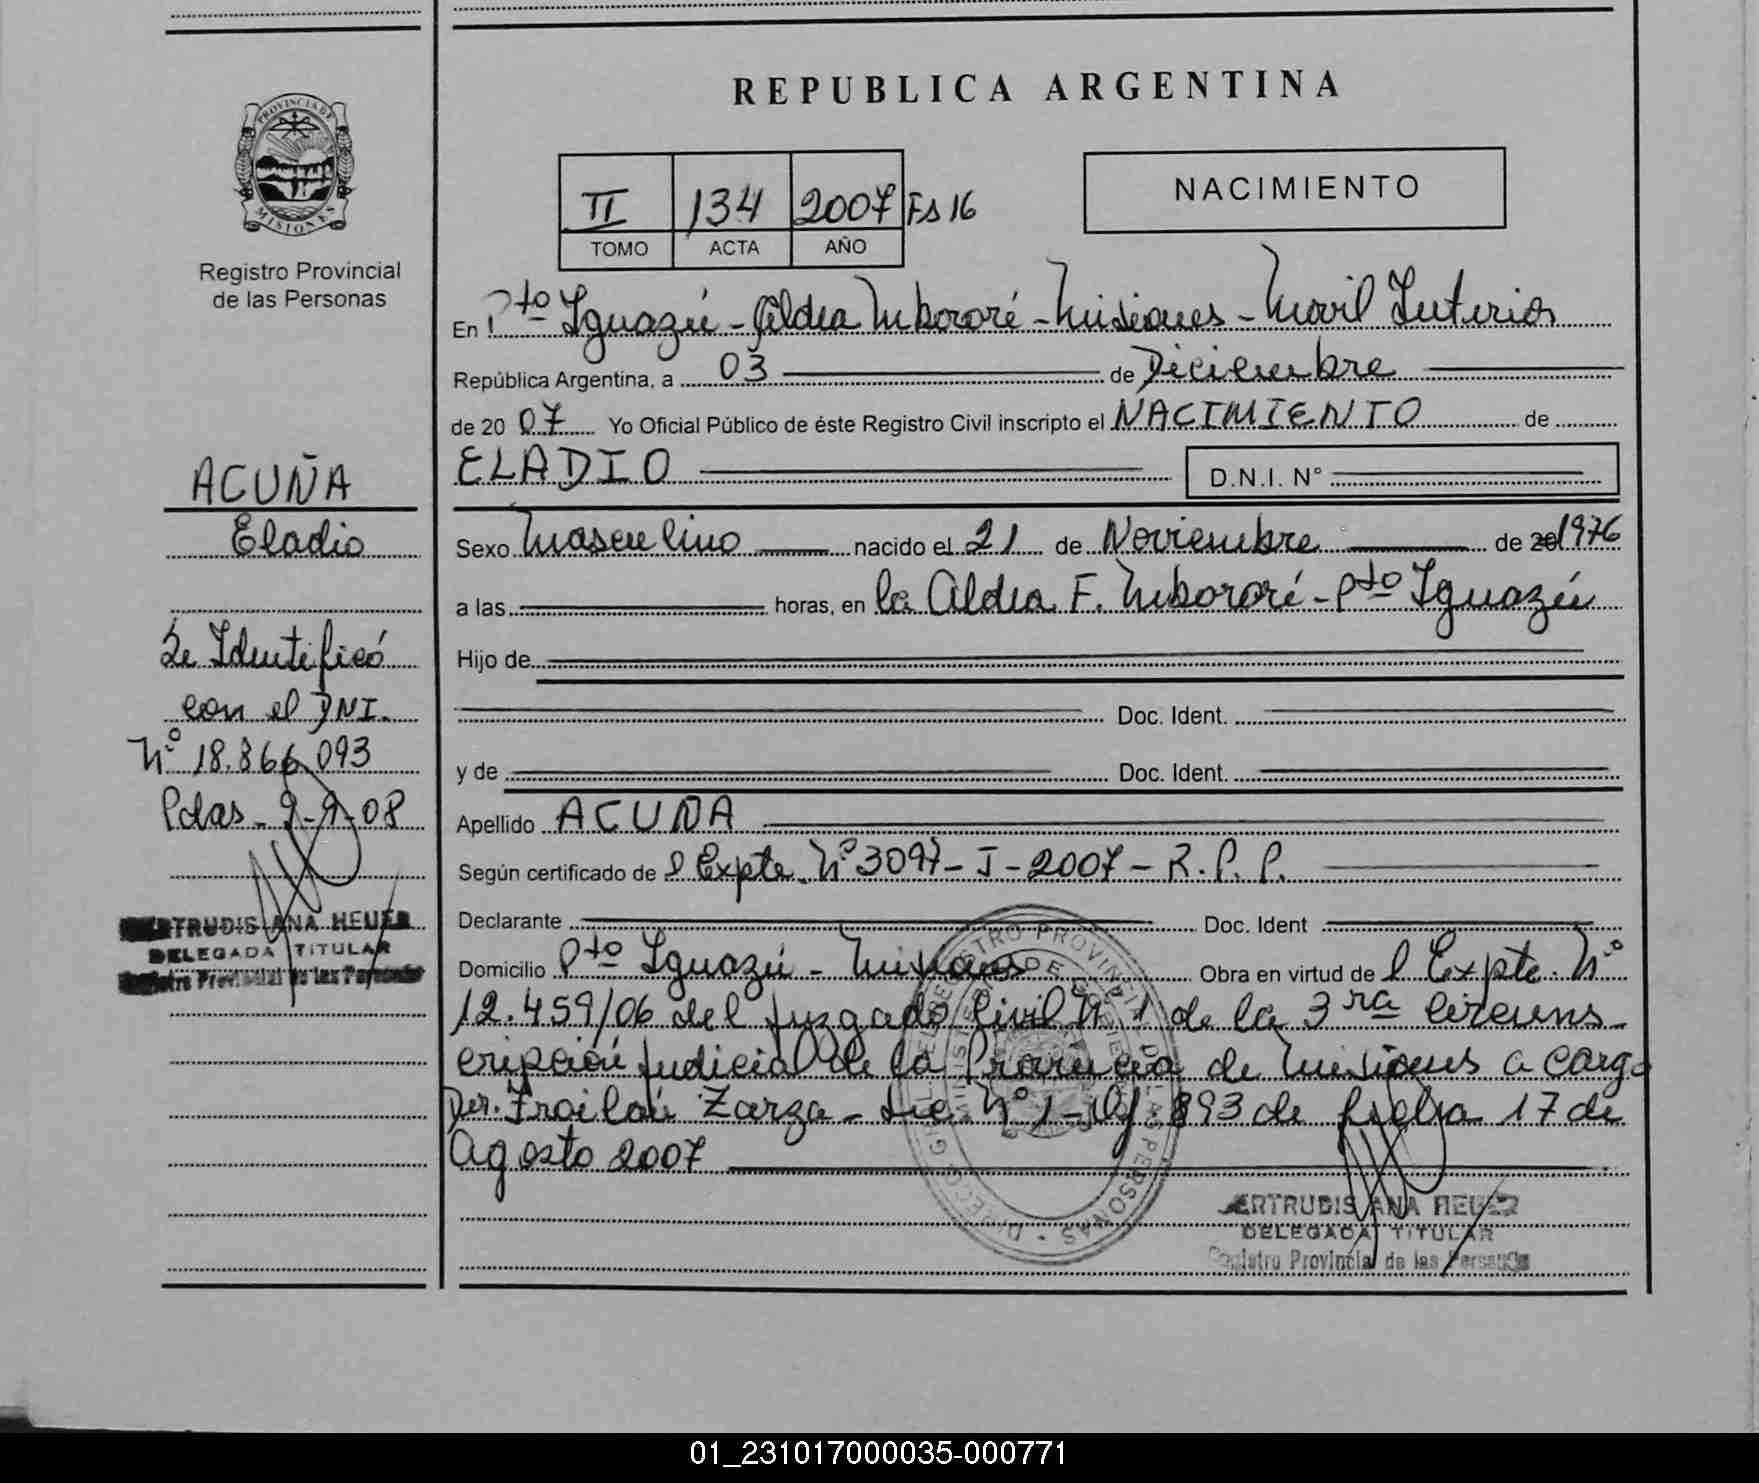 REPUBLICA ARGENTINA
PROVINCIA DE
MISIONES
Registro Provincial
de las Personas
II 134 2007 Fs 16
TOMO ACTA AÑO
NACIMIENTO
En Pto Iguazú - Aldea Mbororé - Misiones - Movil Interior
República Argentina, a 03 de Diciembre
de 20 07 Yo Oficial Público de éste Registro Civil inscripto el NACIMIENTO de
ELADIO D.N.I. N°
Sexo Masculino nacido el 21 de Noviembre de 20 1976
a las horas, en la Aldea F. Mbororé - Pto Iguazú
Hijo de
Doc. Ident.
y de Doc. Ident.
Apellido ACUÑA
Según certificado de l Expte. N° 3097 - J - 2007 - R. P. P.
Declarante Doc. Ident
Domicilio Pto Iguazú - Misiones Obra en virtud de l Expte. N°
12.459/06 del Juzgado Civil N° 1 de la 3ra circuns
cripción Judicial de la Provincia de Misiones a cargo
Der. Froilán Zarza - Sec. N° 1 - Of 893 de fecha 17 de
Agosto 2007
GERTRUDIS ANA HEUER
DELEGADA TITULAR
Registro Provincial de las Personas
ACUÑA
Eladio
Se Identificó
con el DNI.
N° 18.866.093
Pdas - 9-9-08
GERTRUDIS ANA HEUER
DELEGADA TITULAR
Registro Provincial de las Personas
01_231017000035-000771